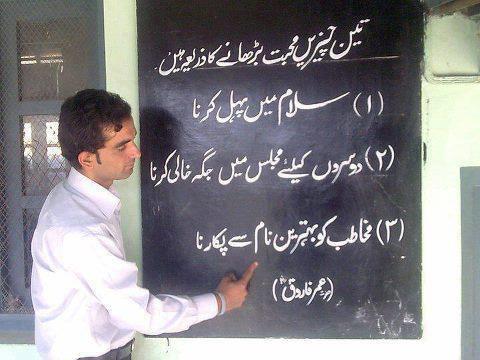 تین چیزیں محبت بڑھانے کا ذریعہ ہیں
(۱) سلام میں پہل کرنا
(۲) دوسروں کیلئے مجلس میں جگہ خالی کرنا
(۳) مخاطب کو بہترین نام سے پکارنا
(عمر فاروقؓ)